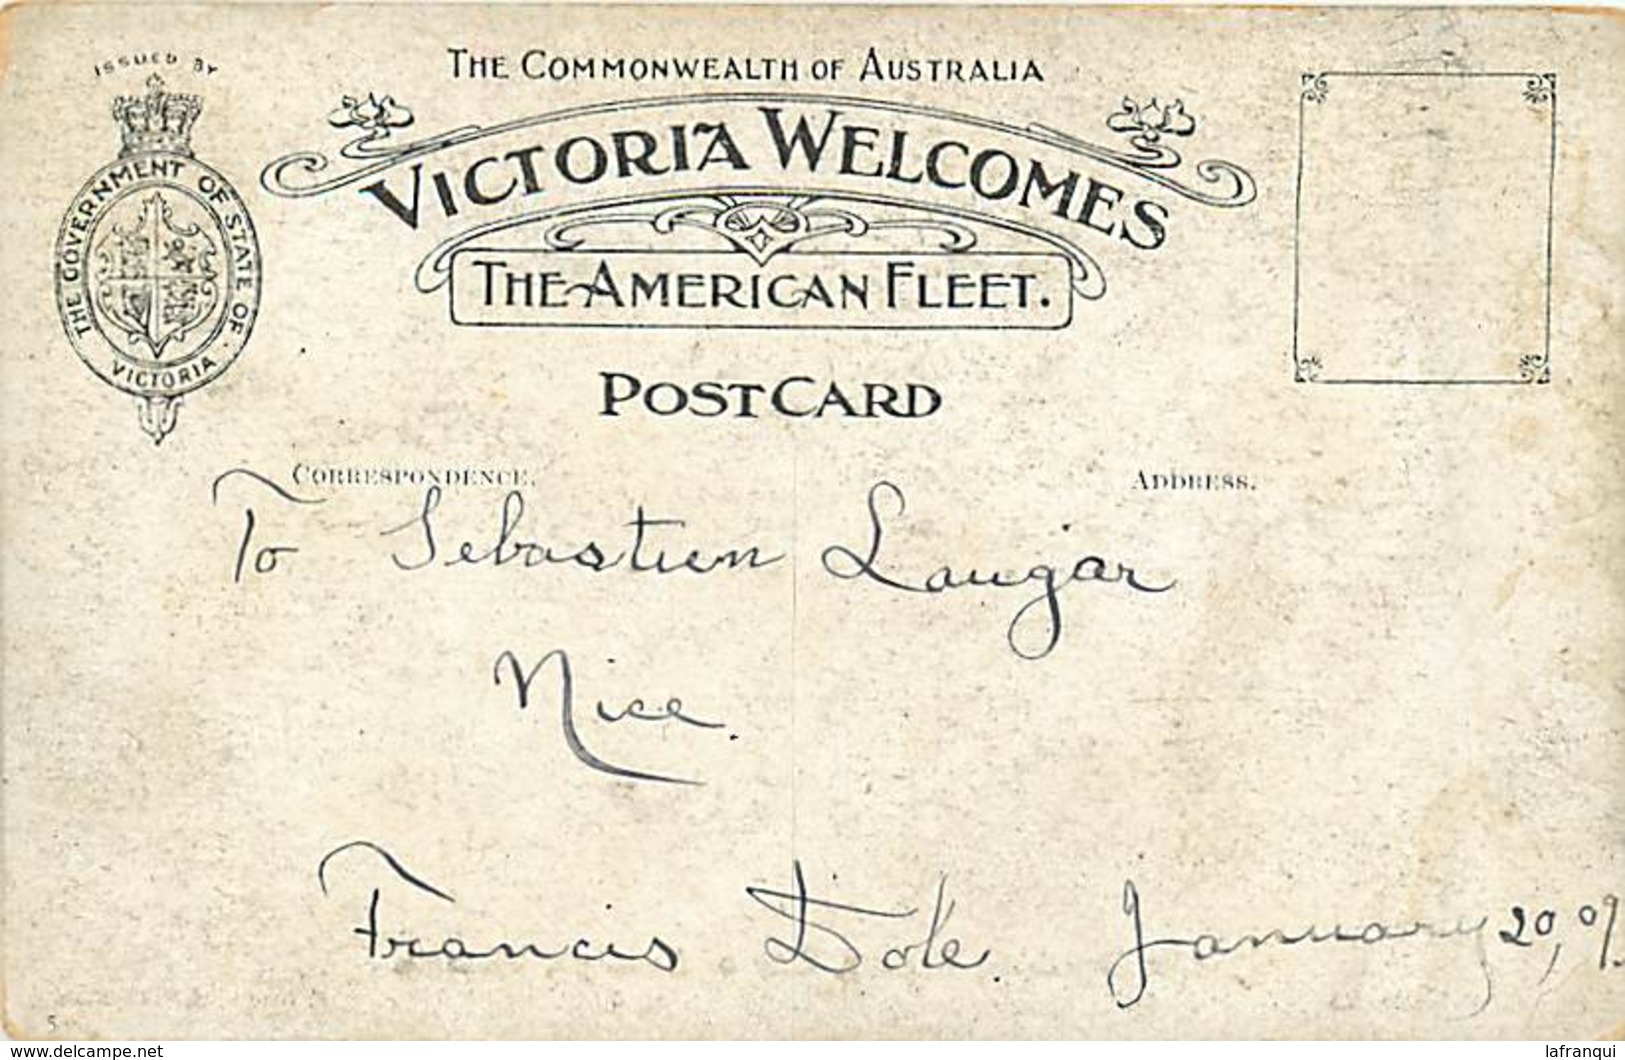 ISSUED BY
THE GOVERNMENT OF STATE OF VICTORIA
THE COMMONWEALTH OF AUSTRALIA
VICTORIA WELCOMES
THE AMERICAN FLEET.
POST CARD
CORRESPONDENCE.
ADDRESS.
To Sebastien Laugar
Nice.
Francis Dole. January 20, 09.
5
delcampe.net
lafranqui